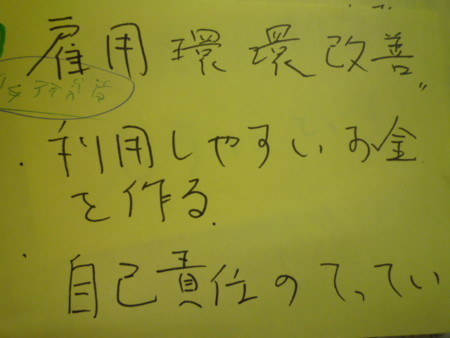 雇用環環改善
・利用しやすいお金
を作る
・自己責任のてってい